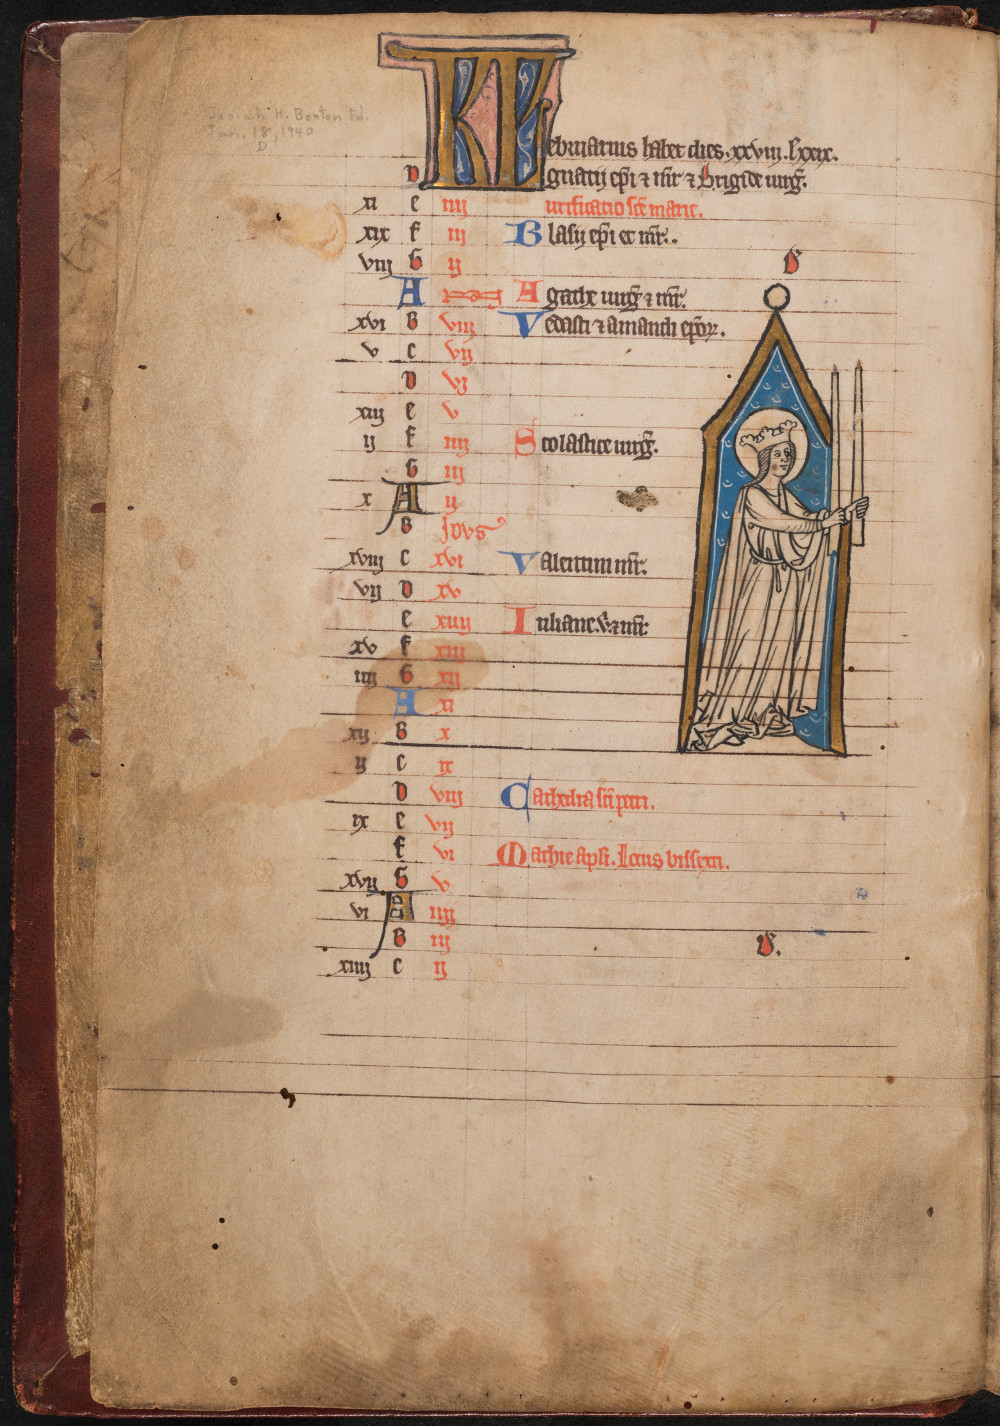 Josiah H. Benton Fd.
Jan. 18, 1940
D
KL ebruarius habet dies xxviii. l xxix.
D gnacii epi ⁊ mr ⁊ Brigide uirg.
xi e iiii urificatio sce marie.
xix f iii Blasij epi et mr.
viii G ii
A Agathe uirg ⁊ mr.
xvi B viii Vedasti ⁊ amandi epor.
v c vii
D vi
xiii e v
ii f iiii Scolastice uirg.
G iii
x A ii
B Idus
xviii c xvi Valentini mr.
vii D xv
e xiiii Iuliane u. ⁊ mr
xv f xiii
iiii G xii
A xi
xii B x
ii c ix
D viii Cathedra sci petri.
ix e vii
f vi Mathie apli. Locus bissexti.
xvii G v
vi A iiii
B iii
xiiii c ii